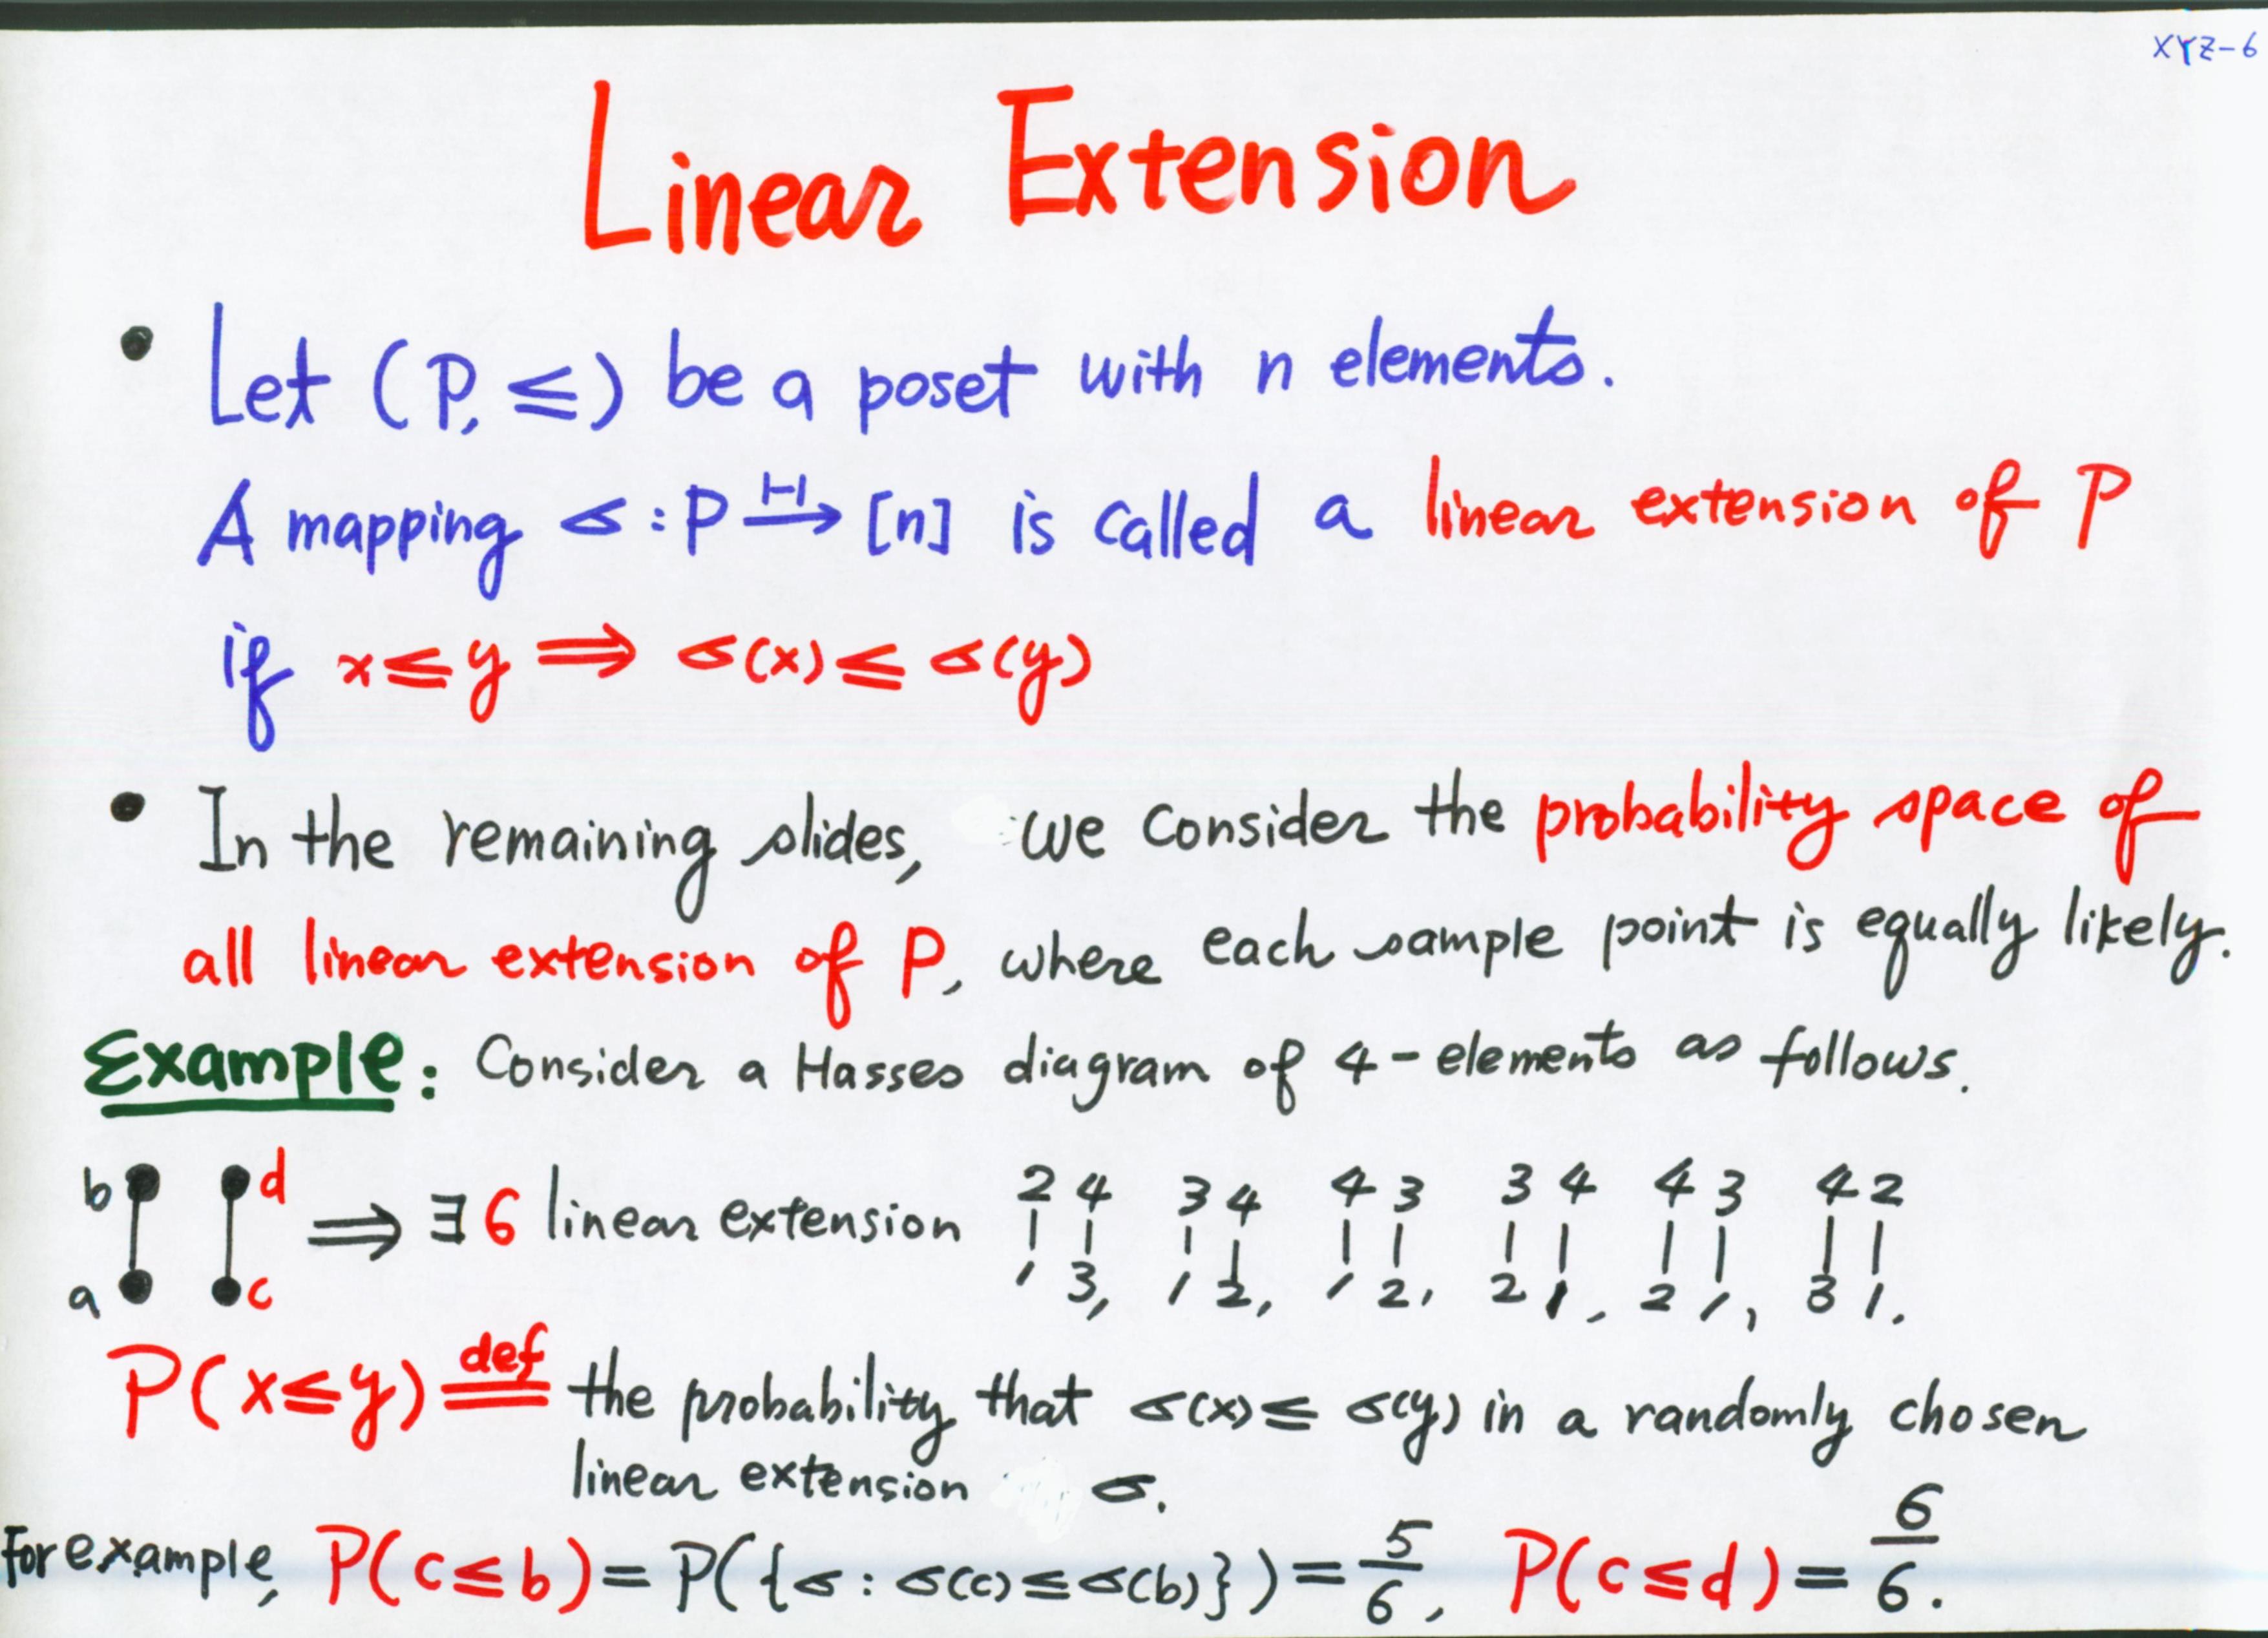 XYZ-6
Linear Extension
• Let (P, ≤) be a poset with n elements.
A mapping σ : P 1-1→ [n] is called a linear extension of P
if x ≤ y ⟹ σ(x) ≤ σ(y)
• In the remaining slides, we consider the probability space of
all linear extension of P, where each sample point is equally likely.
Example: Consider a Hasses diagram of 4-elements as follows.
b d 2 4 3 4 4 3 3 4 4 3 4 2
⟹ ∃ 6 linear extension
a c 1 3, 1 2, 1 2, 2 1, 2 1, 3 1.
P(x ≤ y) def= the probability that σ(x) ≤ σ(y) in a randomly chosen
linear extension σ.
For example, P(c ≤ b) = P({σ : σ(c) ≤ σ(b)}) = 5/6, P(c ≤ d) = 6/6.